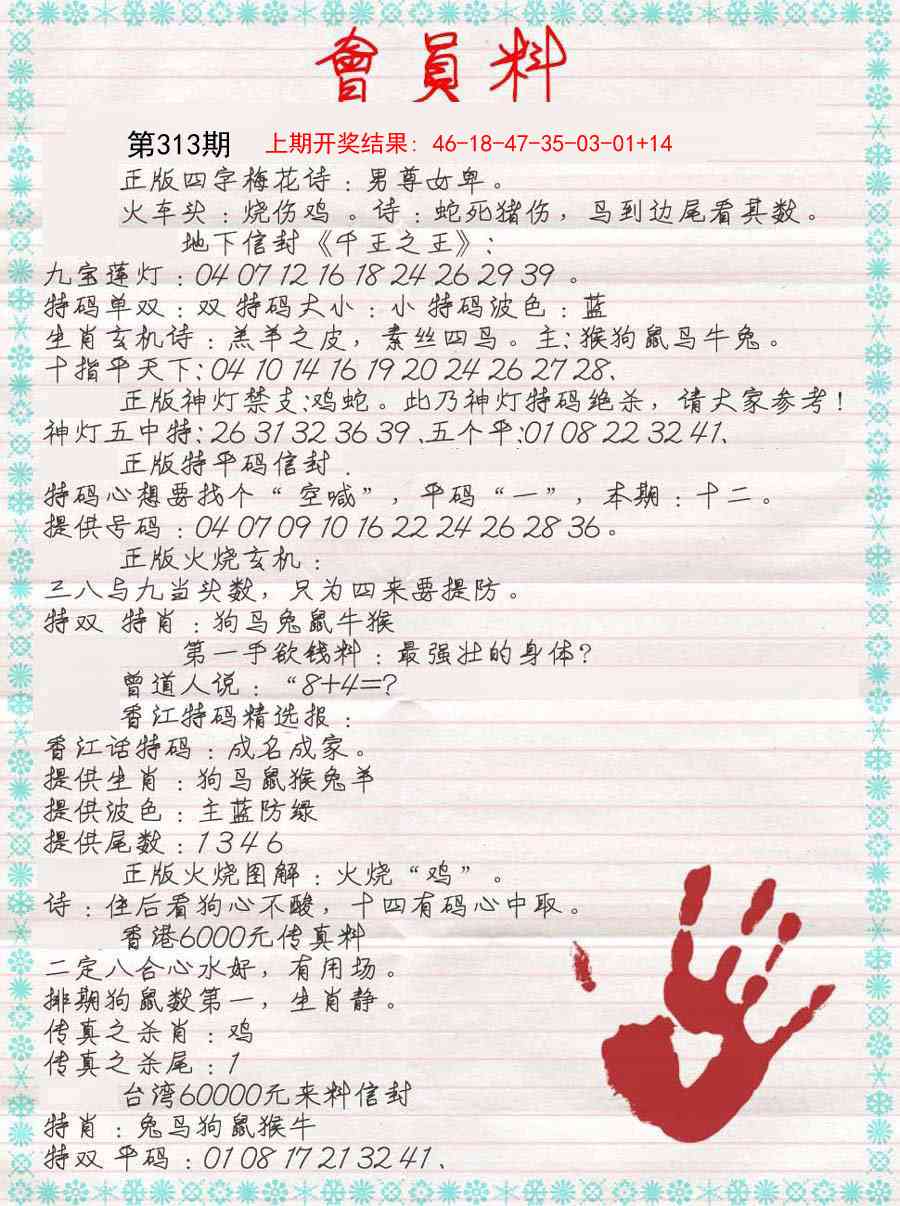 會員料
第313期 上期开奖结果: 46-18-47-35-03-01+14
正版四字梅花诗：男尊女卑。
火车头：烧伤鸡 。诗：蛇死猪伤，鸟到边尾看其数。
地下信封《千王之王》：
九宝莲灯：04 07 12 16 18 24 26 29 39 。
特码单双：双 特码大小：小 特码波色：蓝
生肖玄机诗：羔羊之皮，素丝四鸟。主:猴狗鼠鸟牛兔。
十指平天下:04 10 14 16 19 20 24 26 27 28、
正版神灯禁支:鸡蛇。此乃神灯特码绝杀，请大家参考！
神灯五中特:26 31 32 36 39 、五个平:01 08 22 32 41、
正版特平码信封．
特码心想要找个“ 空喊”，平码“一”，本期：十二。
提供号码：04 07 09 10 16 22 24 26 28 36。
正版火烧玄机：
三八与九当头数，只为四来要提防。
特双 特肖：狗鸟兔鼠牛猴
第一手欲钱料：最强壮的身体?
曾道人说：“8+4=?
香江特码精选报：
香江话特码：成名成家。
提供生肖：狗鸟鼠猴兔羊
提供波色：主蓝防绿
提供尾数：1 3 4 6
正版火烧图解：火烧“鸡”。
诗：住后看狗心不酸，十四有码心中取。
香港6000元传真料
二定八合心水好，有用场。
排期狗鼠数第一，生肖静。
传真之杀肖：鸡
传真之杀尾：1
台湾60000元来料信封
特肖：兔鸟狗鼠猴牛
特双 平码：01 08 17 21 32 41、